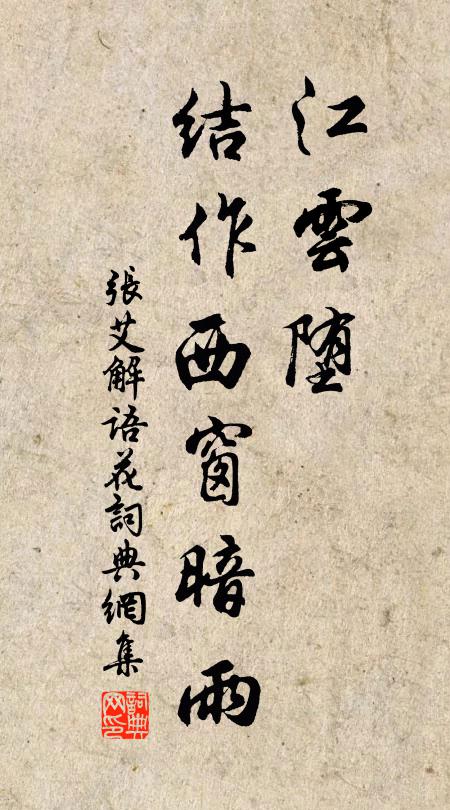 江雲堕
結作西窗暗雨
張艾解語花詞典網集
詞典
网印